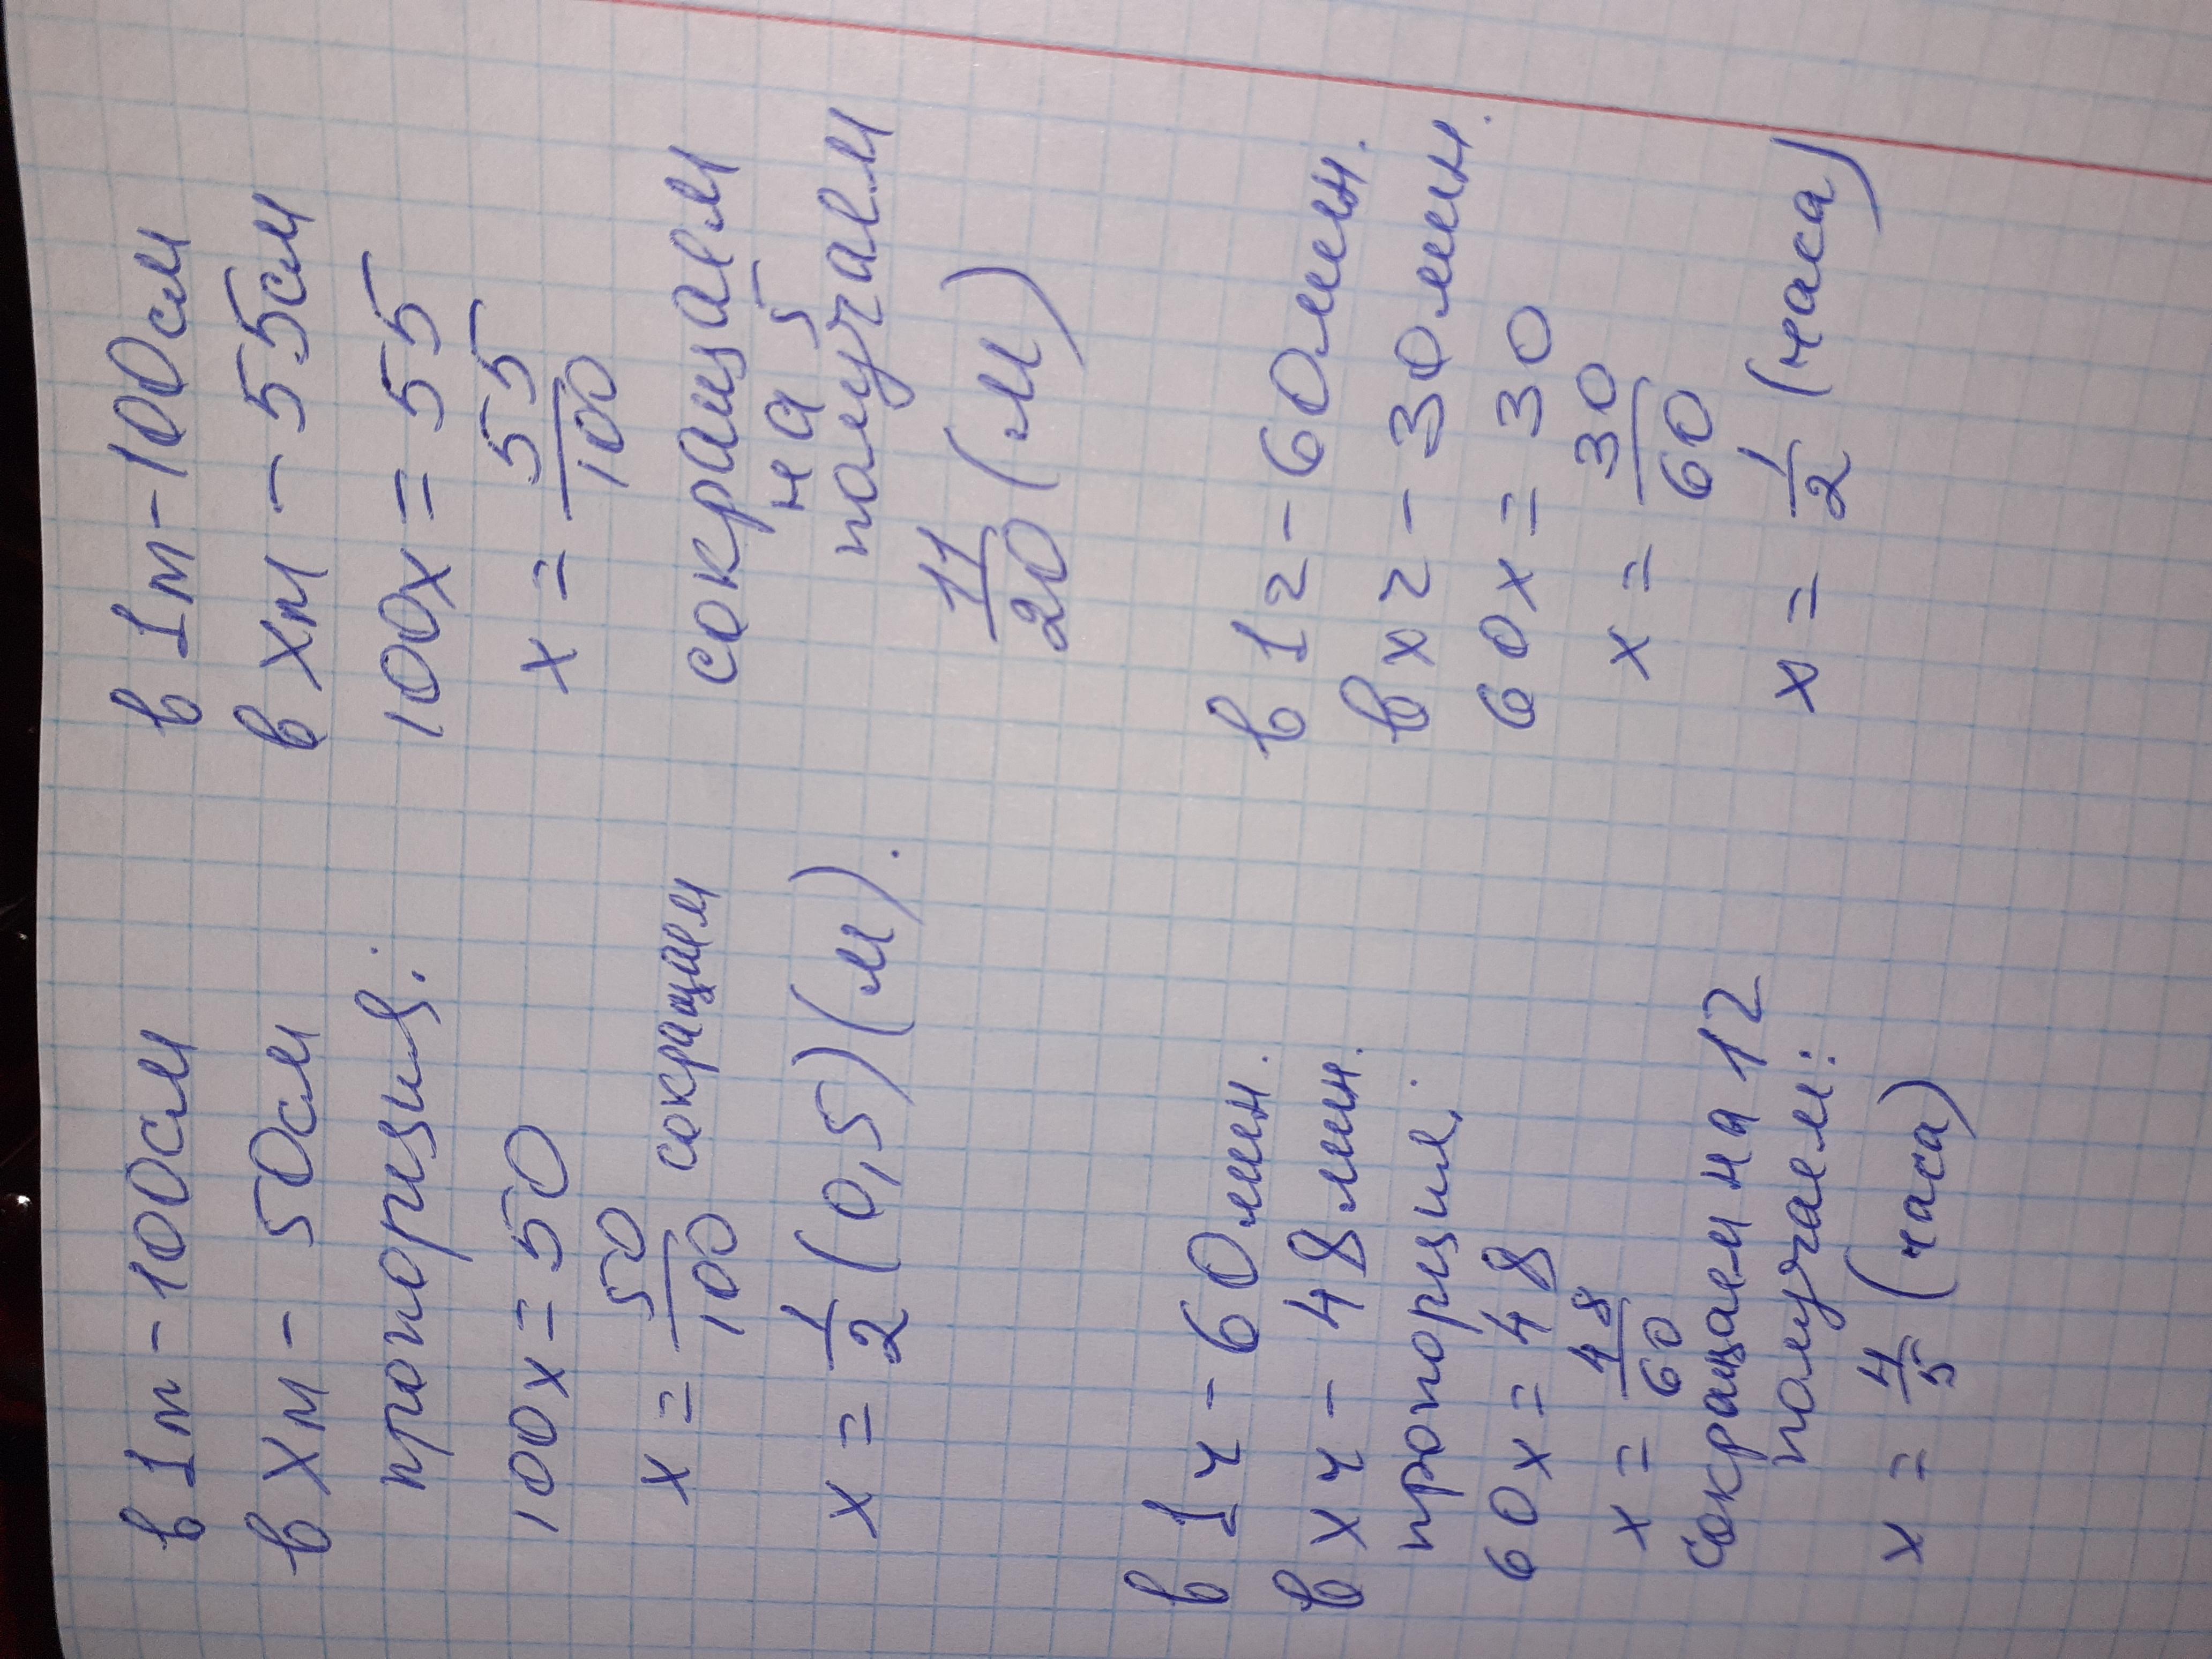 в 1м - 100см
в хм - 50см
пропорция:
100х = 50
х = 50/100 сокращаем
х = 1/2 (0,5) (м).
в 1м - 100см
в хм - 55см
100х = 55
х = 55/100
сокращаем
на 5
получаем
11/20 (м)
в 1ч - 60мин.
в хч - 48мин.
пропорция:
60х = 48
х = 48/60
сокращаем на 12
получаем:
х = 4/5 (часа)
в 1ч - 60мин.
в хч - 30мин.
60х = 30
х = 30/60
х = 1/2 (часа)